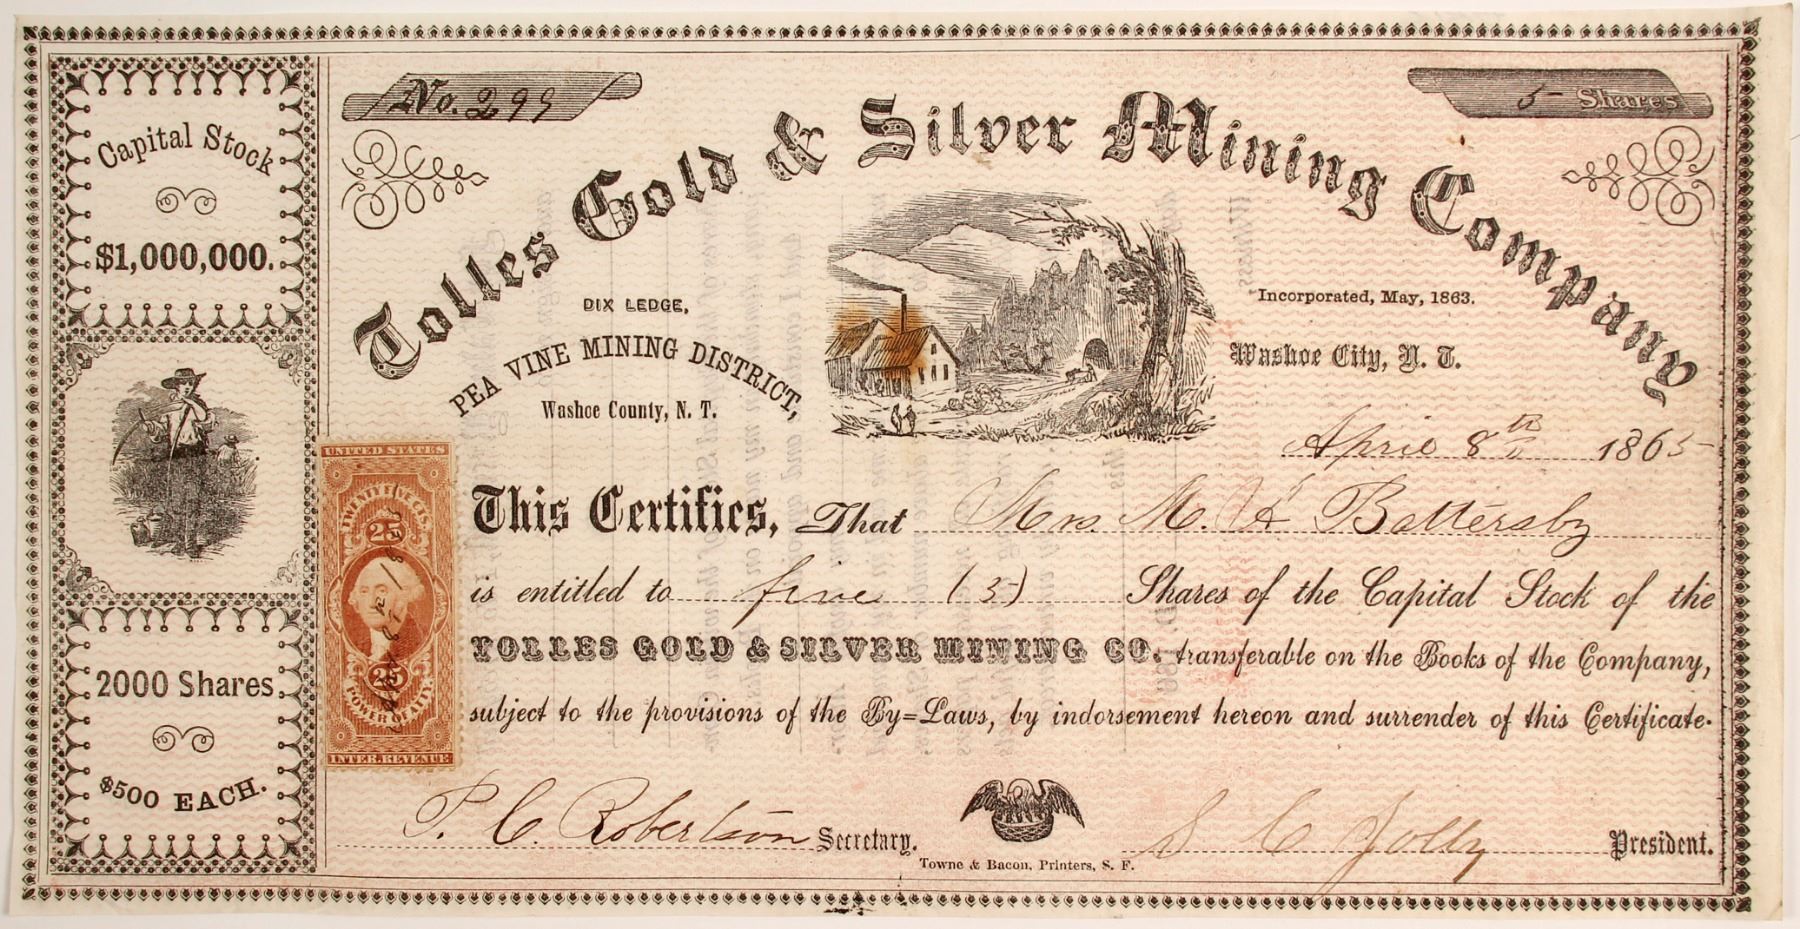 No. 299
5 Shares
Capital Stock
$1,000,000.
2000 Shares
$500 EACH.
Tolles Gold & Silver Mining Company
DIX LEDGE,
PEA VINE MINING DISTRICT,
Washoe County, N. T.
Incorporated, May, 1863.
Washoe City, N. T.
April 8th 1865
This Certifies, That Mrs. M. A Battersby
is entitled to five (5) Shares of the Capital Stock of the
TOLLES GOLD & SILVER MINING CO. transferable on the Books of the Company,
subject to the provisions of the By=Laws, by indorsement hereon and surrender of this Certificate.
UNITED STATES
TWENTY FIVE CTS.
25
25
POWER OF ATTY.
INTER. REVENUE
P. C. Robertson Secretary.
S C Jolly President.
Towne & Bacon, Printers, S. F.